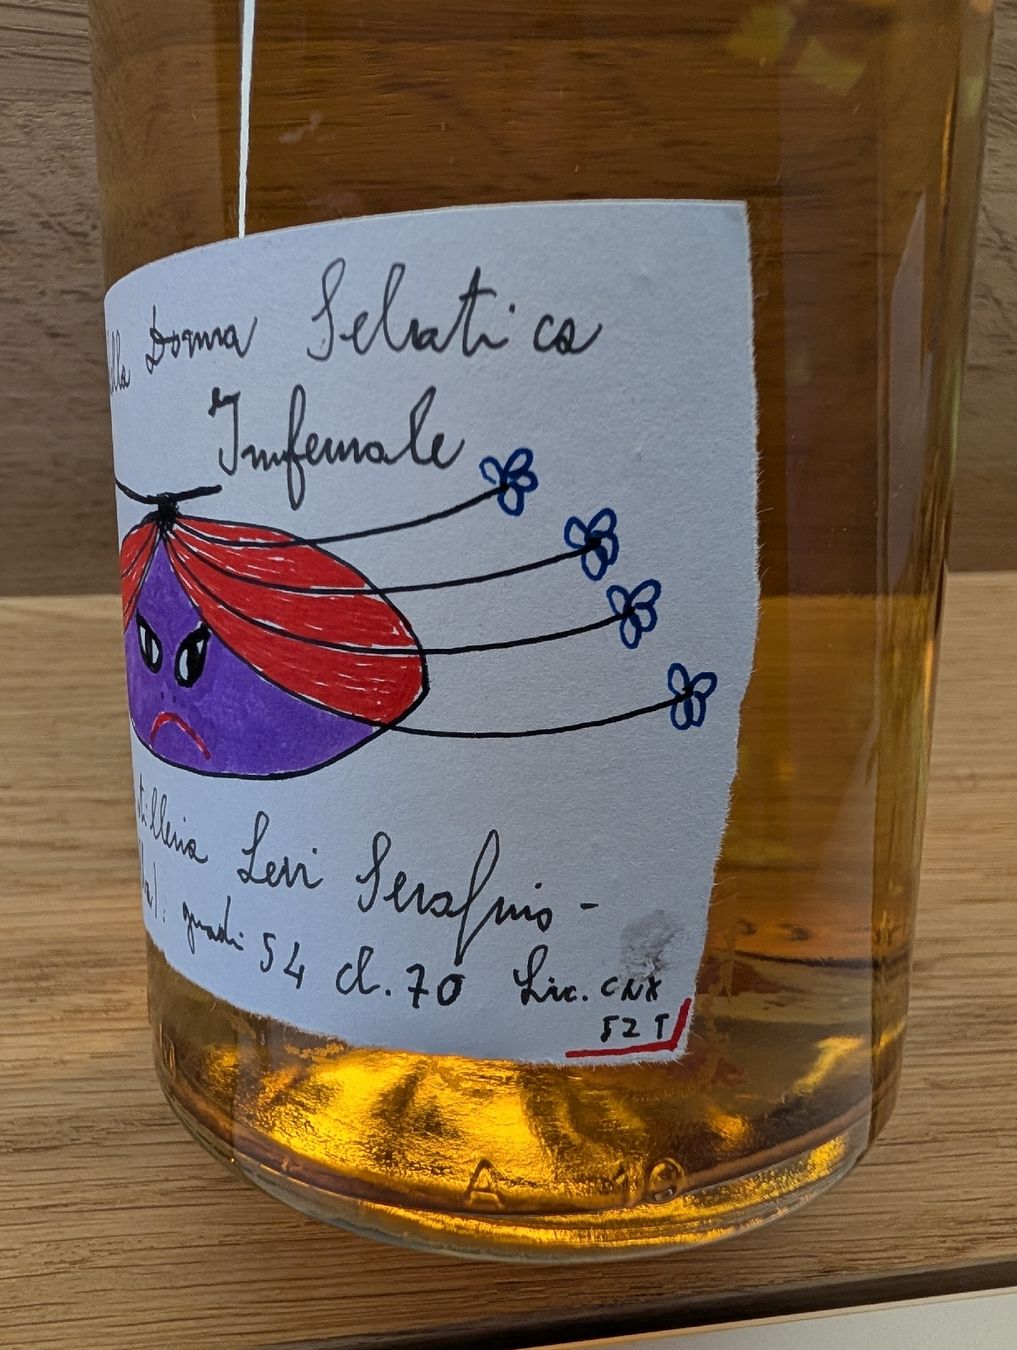 lla Donna Selvatica
Infernale
stilleria Levi Serafino -
ba): gradi 54 cl. 70 Lic. CNX
52 T
A 10